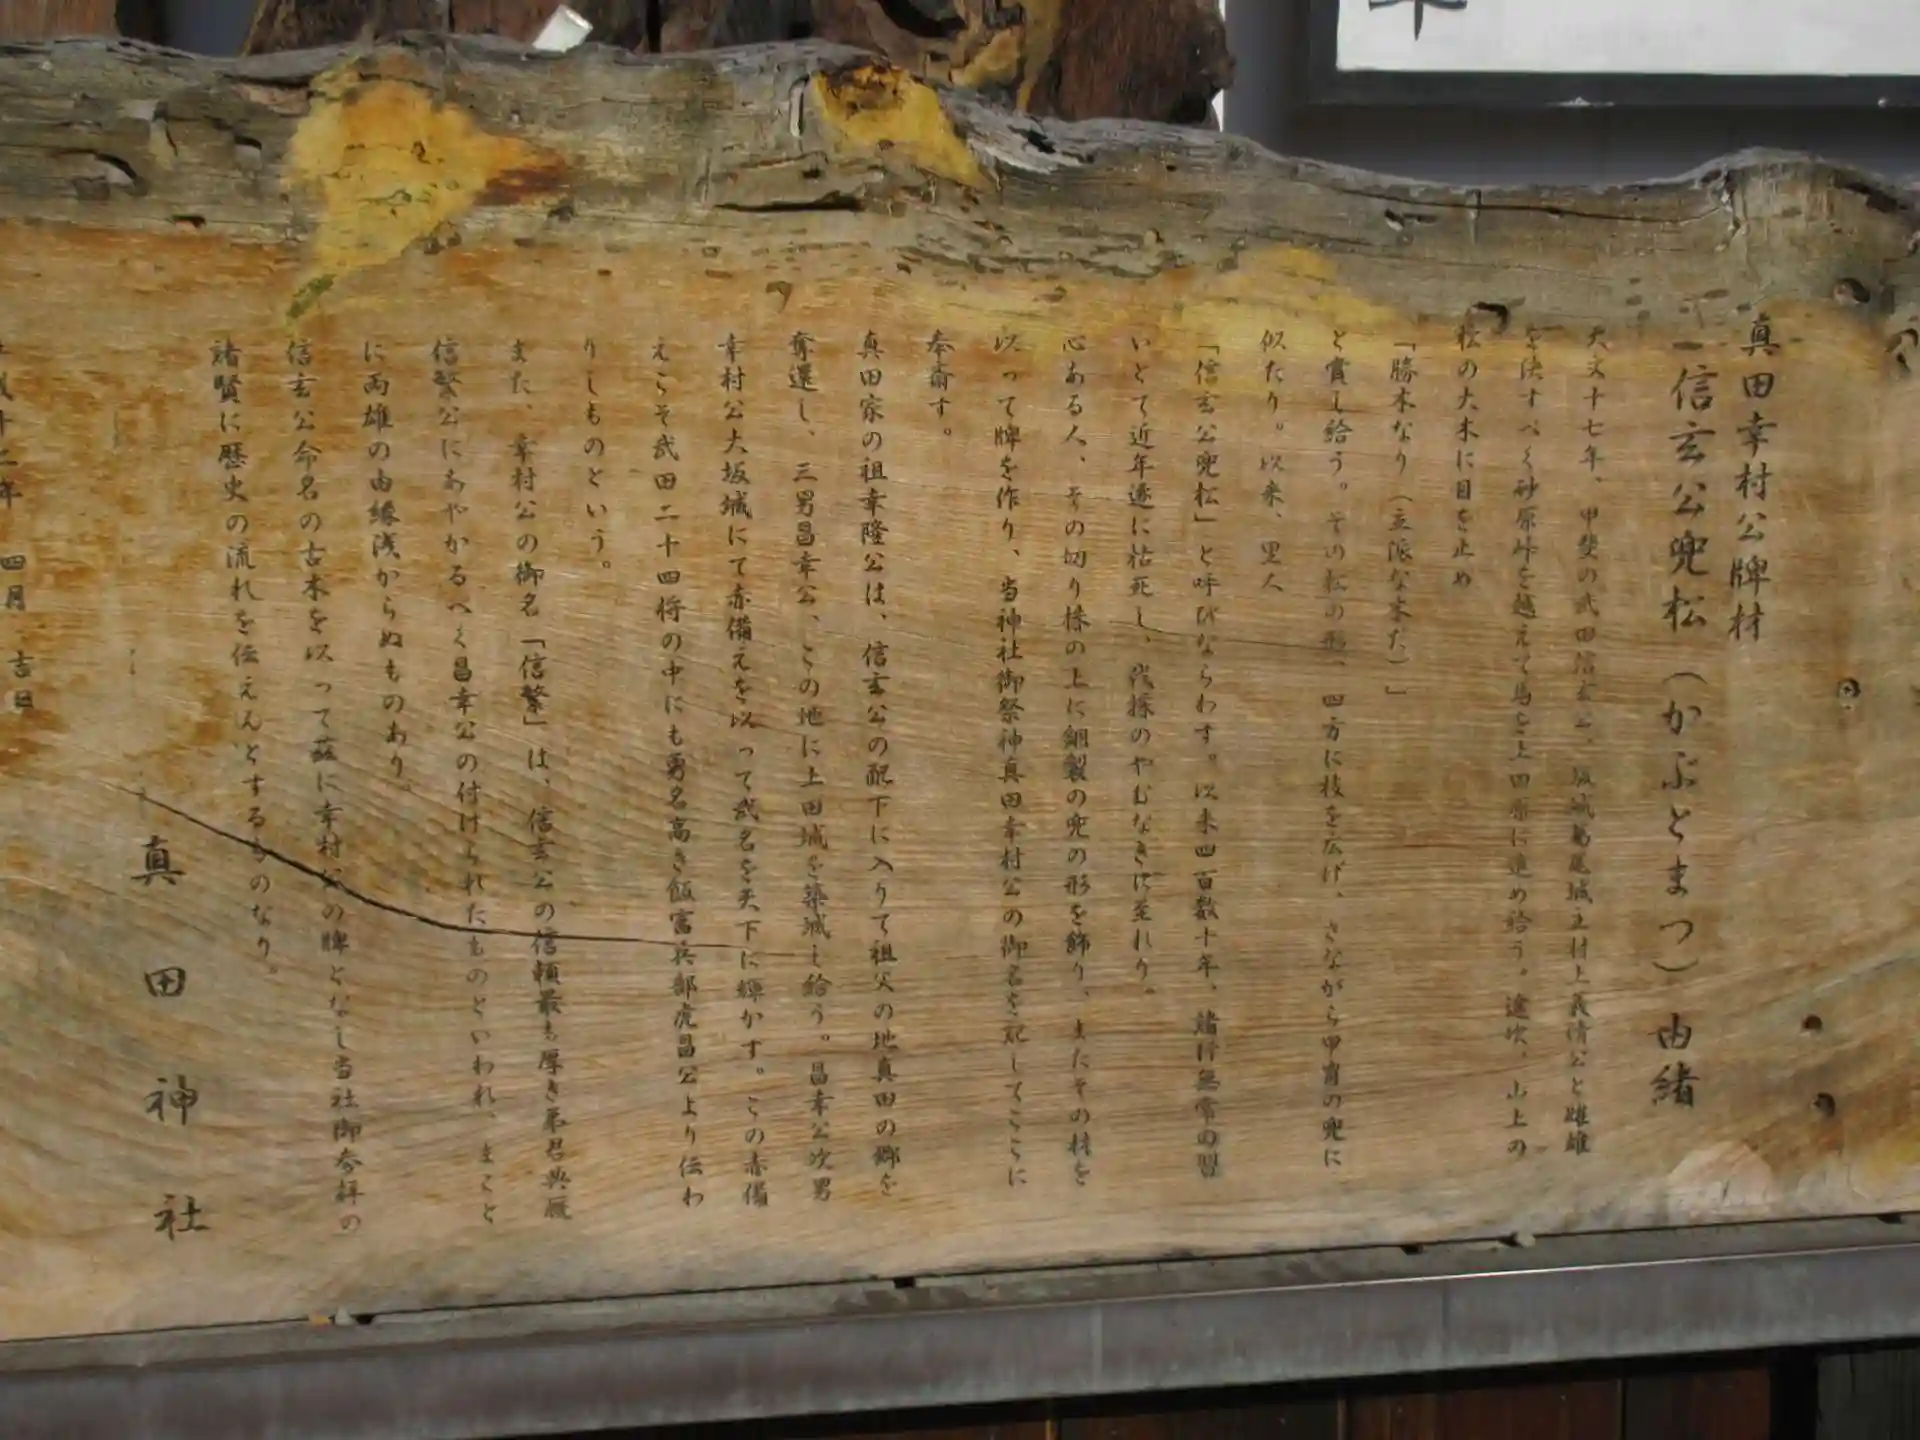 真田幸村公牌材
信玄公兜松（かぶとまつ）由緒
天文十七年、甲斐の武田信玄公、坂城葛尾城主村上義清公と雌雄
を決すべく砂原峠を越えて馬を上田原に進め給う。途次、山上の
松の大木に目を止め
「勝木なり（立派な木だ）」
と賞し給う。その松の形、四方に枝を広げ、さながら甲冑の兜に
似たり。以来、里人
「信玄公兜松」と呼びならわす。以来四百数十年、諸行無常の習
いとて近年遂に枯死し、伐採のやむなきに至れり。
心ある人、その切り株の上に銅製の兜の形を飾り、またその材を
以って牌を作り、当神社御祭神真田幸村公の御名を記してここに
奉斎す。
真田家の祖幸隆公は、信玄公の配下に入りて祖父の地真田の郷を
奪還し、三男昌幸公、この地に上田城を築城し給う。昌幸公次男
幸村公大坂城にて赤備えを以って武名を天下に輝かす。この赤備
えこそ武田二十四将の中にも勇名高き飯富兵部虎昌公より伝わ
りしものという。
また、幸村公の御名「信繁」は、信玄公の信頼最も厚き弟君典厩
信繁公にあやかるべく昌幸公の付けられたものといわれ、まこと
に両雄の由縁浅からぬものあり。
信玄公命名の古木を以って茲に幸村公の牌となし当社御参拝の
諸賢に歴史の流れを伝えんとするものなり。
真田神社
成十二年 四月 吉日